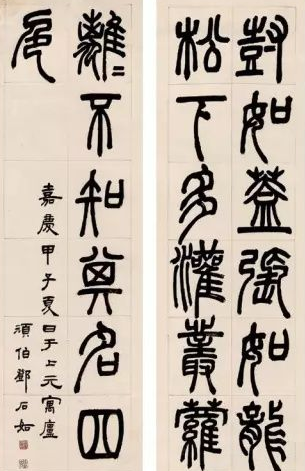 尌如蓋張如龍
松下多灌叢蘿
離〻不知其名四
色
嘉慶甲子夏日于上元寓廬
頑伯鄧石如